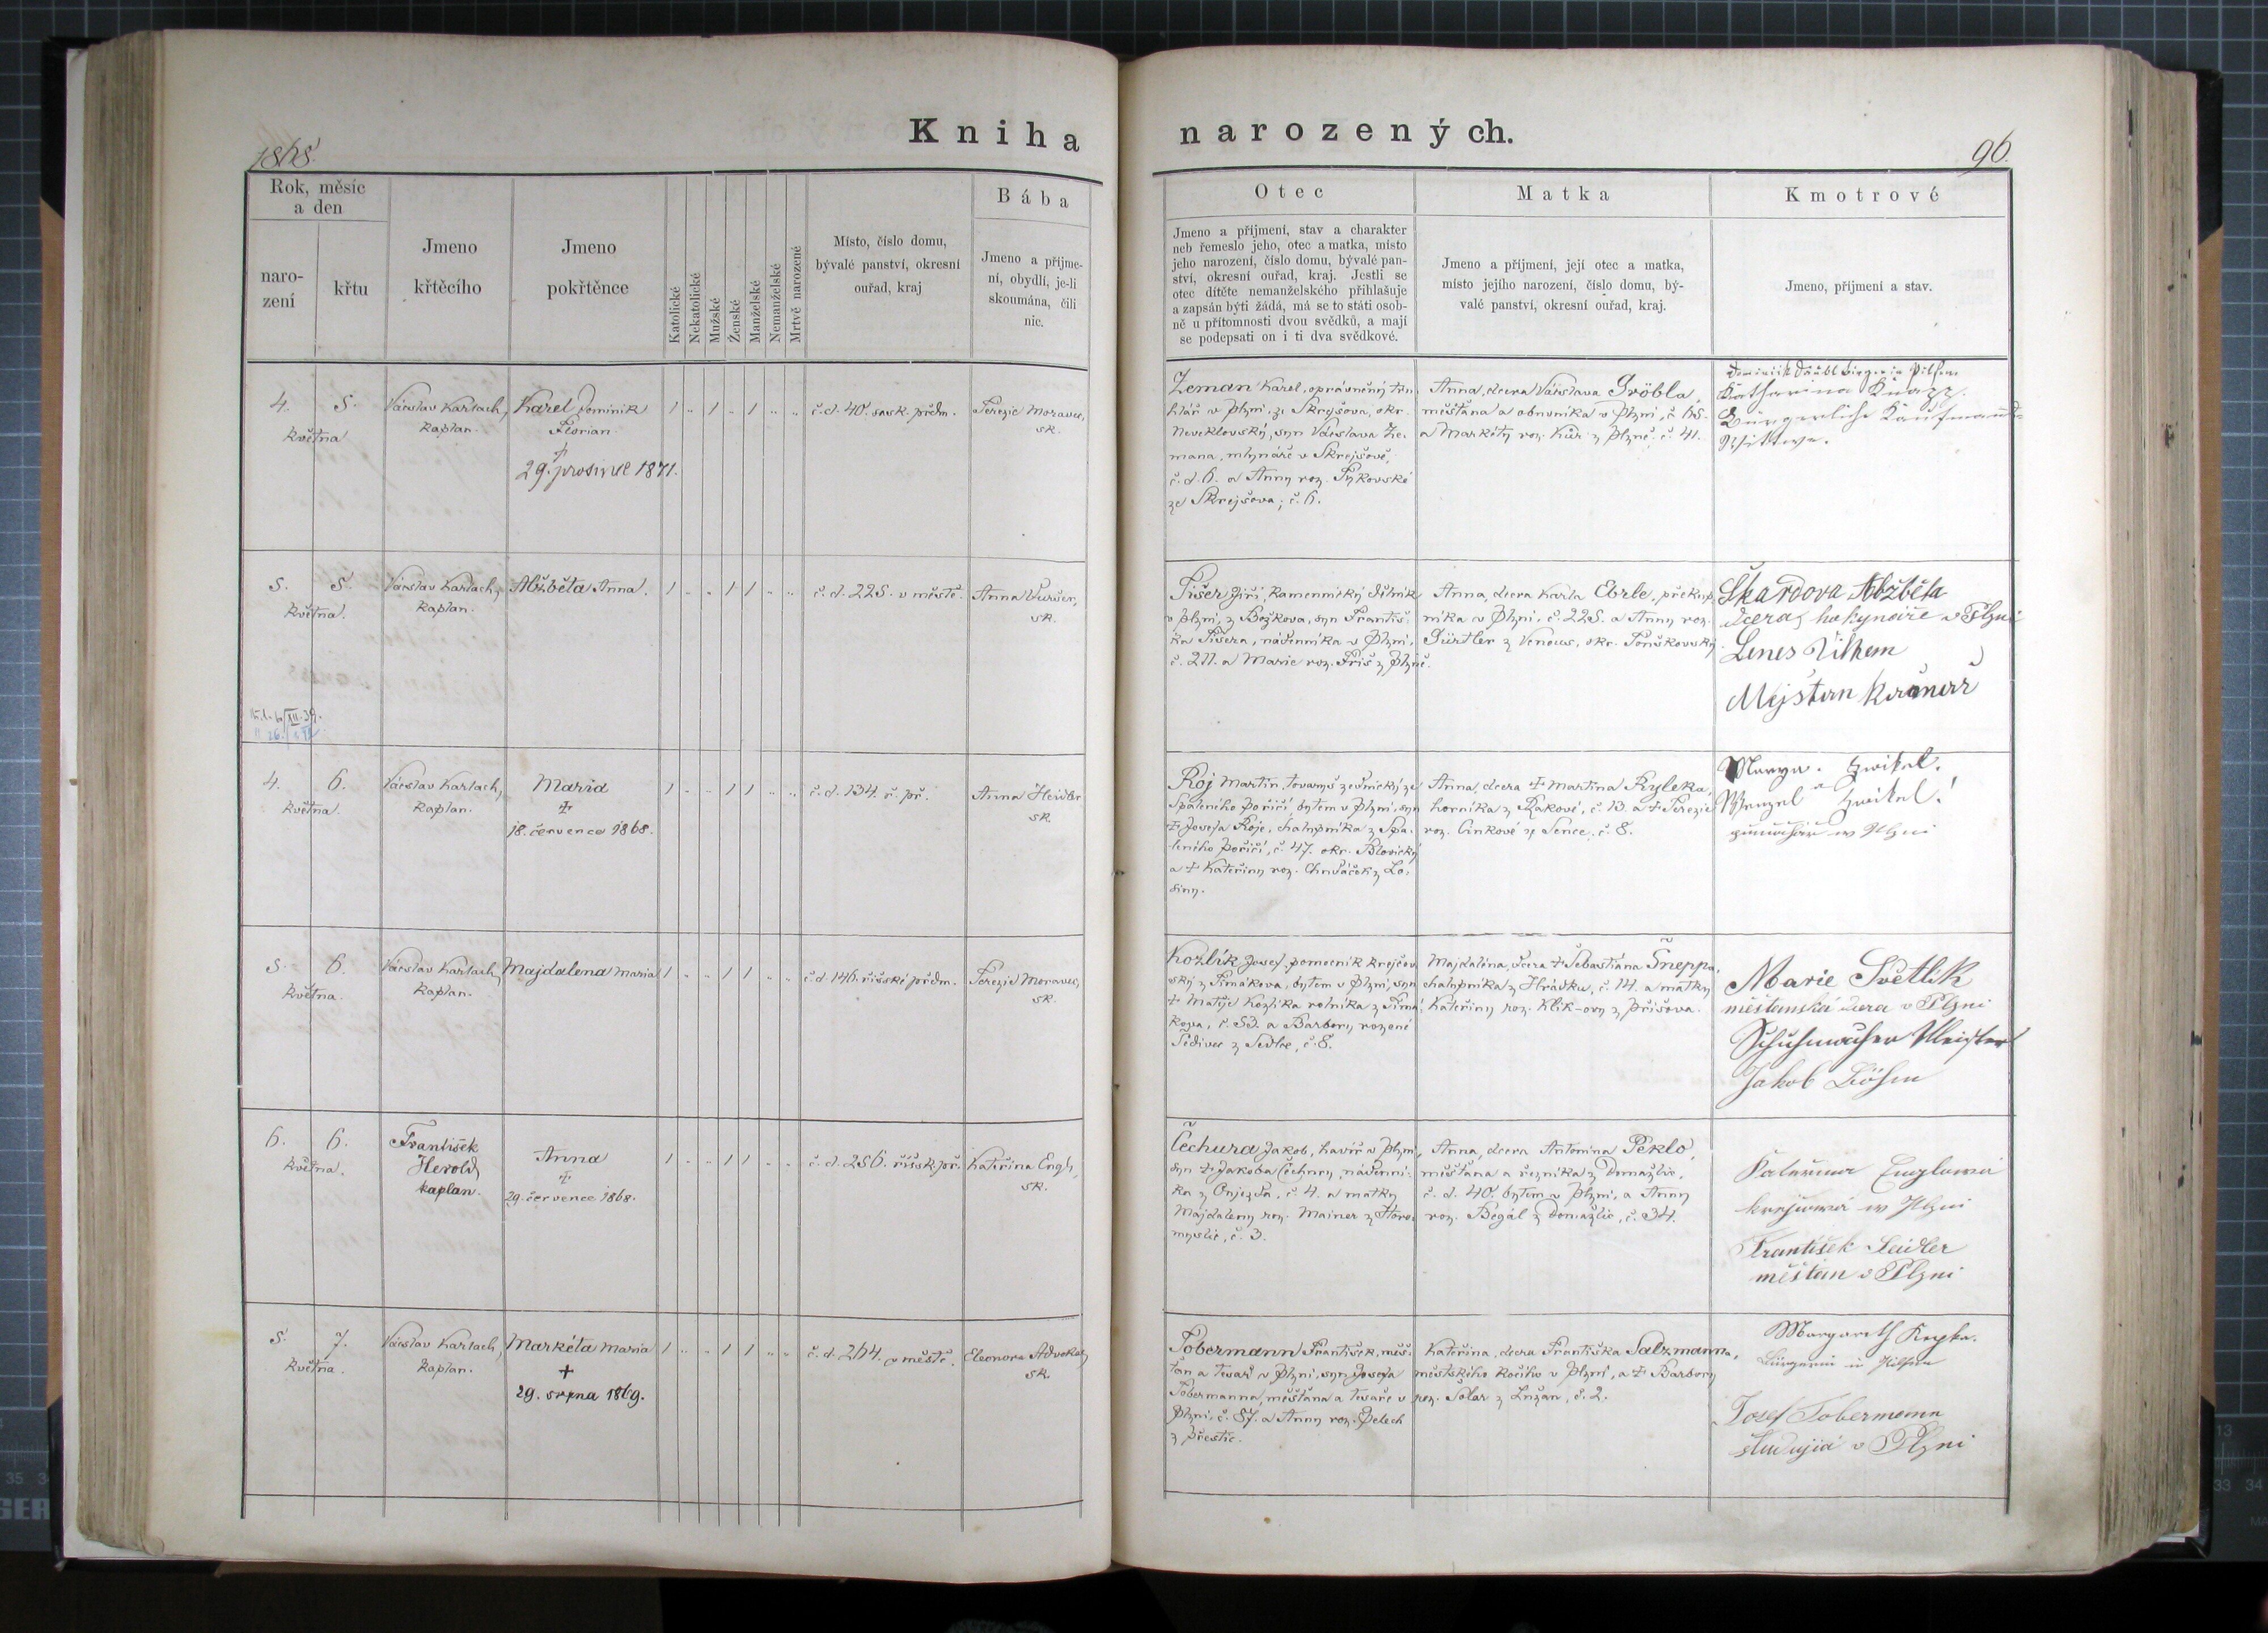 Kniha narozených.
1868.
96.
Rok, měsíc
a den
naro-
zení
křtu
Jmeno
křtěcího
Jmeno
pokřtěnce
Katolické
Nekatolické
Mužské
Ženské
Manželské
Nemanželské
Mrtvě narozené
Místo, číslo domu,
bývalé panství, okresní
ouřad, kraj
Bába
Jmeno a příjme-
ní, obydlí, je-li
skoumána, čili
nic.
Otec
Jmeno a příjmení, stav a charakter
neb řemeslo jeho, otec a matka, místo
jeho narození, číslo domu, bývalé pan-
ství, okresní ouřad, kraj. Jestli se
otec dítěte nemanželského přihlašuje
a zapsán býti žádá, má se to státi osob-
ně u přítomnosti dvou svědků, a mají
se podepsati on i ti dva svědkové.
Matka
Jmeno a příjmení, její otec a matka,
místo jejího narození, číslo domu, bý-
valé panství, okresní ouřad, kraj.
Kmotrové
Jmeno, příjmení a stav.
4. 5.
května
Václav Karlach,
kaplan.
Karel Dominik
Florian
†
29. prosince 1871.
1 " 1 " 1 " "
č.d. 40. sask. předm.
Terezie Moravec,
sk.
Zeman Karel, oprávněný
v Plzni, ze Skrejšova, okr.
Neveklovský, syn Václava Ze-
mana, mlynáře v Skrejšově,
č.d. 6. a Anny roz. Pýkovské
ze Skrejšova, č. 6.
Anna, dcera Václava Gröbla,
měšťana a obuvníka v Plzni, č.
a Markéty roz. z Plzně č. 41.
Katharina Knapp.
Bürgerliche Kaufmanns-
Wittwe.
5. 5.
května.
Václav Karlach,
kaplan.
Alžběta Anna.
1 " " 1 1 " "
č.d. 225. v městě.
Anna
sk.
Fišer Jiří, kamennický dělník
v Plzni, z Božkova, syn Františ-
ka Fišera, nádenníka v Plzni,
č. 211. a Marie roz. Friš z Plzně.
Anna, dcera Karla Eberle, překup-
níka v Plzni, č. 225. a Anny roz.
Gürtler z
Škardova Alžběta
dcera hokynáře v Plzni
Lenes Vilhem
Mejstr
4. 6.
května.
Václav Karlach,
kaplan.
Maria
†
18. července 1868.
1 " " 1 1 " "
č.d. 134. ř. př.
Anna Heidler
sk.
Roj Martin, tovaryš zednický ze
Spáleného Poříčí, bytem v Plzni, syn
† Josefa Roje, chalupníka z Spá-
leného Poříčí, č. 47. okr. Blovický
a † Kateřiny roz. z Lo-
siny.
Anna, dcera † Martina Ryleka,
horníka z Rakové, č. 13. a † Terezie
roz. Cinkové ze Sence, č. 8.
Marya. Zwikel.
Wenzel Zwikel!
w Plzni
5. 6.
května.
Václav Karlach,
kaplan.
Majdalena Maria
1 " " 1 1 " "
č.d. 146. říšské předm.
Terezie Moravec,
sk.
Kozlík Josef, pomocník krejčov-
ský z Timákova, bytem v Plzni, syn
† Matěje Kozlíka rolníka z Timá-
kova, č. 53. a Barbory rozené
Šedivec z Sedlce, č. 8.
Majdaléna, dcera † Šebastiána Šneppa,
chalupníka z Hrádku, č. 14. a matky
Kateřiny roz. Klik-ovy z Příšova.
Marie Světlik
měšťanská dcera v Plzni
Schuhmacher Meister
Jakob Böhm
6. 6.
května.
František
Herold,
kaplan.
Anna
†
29. července 1868.
1 " " 1 1 " "
č.d. 256. říšsk. př.
Kateřina Engl,
sk.
Čechura Jakob, havíř v Plzni,
syn † Jakoba Čechury, nádenní-
ka z Onjezda, č. 4. a matky
Majdaleny roz. Mainer z Horo-
myslic, č. 3.
Anna, dcera Antonína Peklo,
měšťana a řezníka z Domažlic,
č.d. 40. bytem v Plzni, a Anny
roz. Begál z Domažlic, č. 34.
Kateřina Englowá
krejčowá w Plzni
František Seidler
měšťan v Plzni
5. 7.
května.
Václav Karlach,
kaplan.
Markéta Maria
†
29. srpna 1869.
1 " " 1 1 " "
č.d. 264. v městě.
Eleonora Advokat,
sk.
Tobermann František, měš-
ťan a tesař v Plzni, syn Josefa
Tobermanna, měšťana a tesaře v
Plzni, č. 87. a Anny roz. Pelech
z Přestic.
Kateřina, dcera Františka Salzmanna,
městského kočího v Plzni, a † Barbory
roz. Šolar z Lužan, č. 2.
Margareth
Bürgerin in Pilsen
Josef Tobermann
studující v Plzni